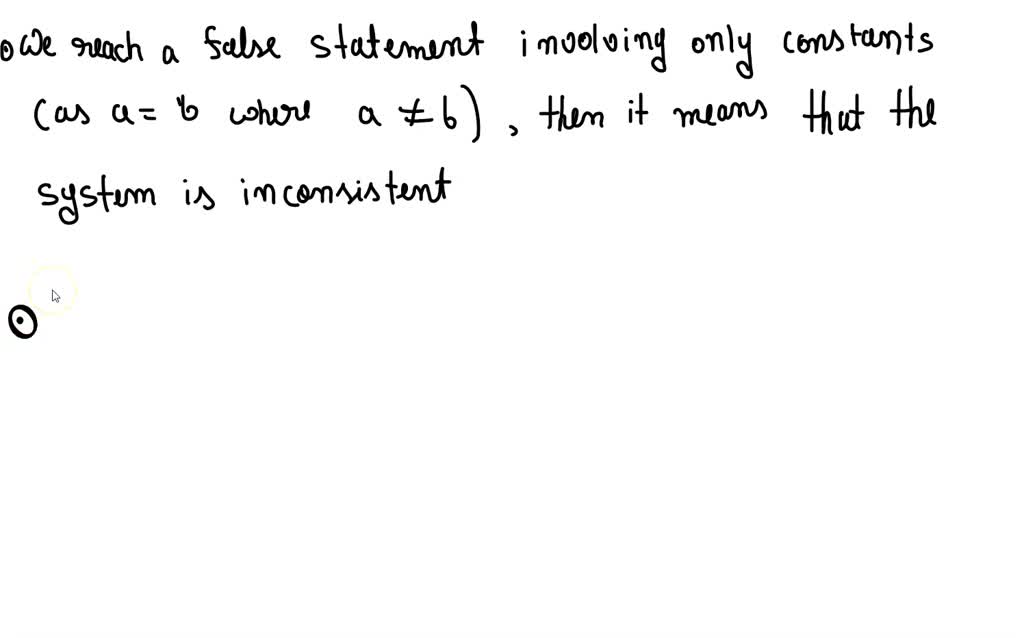 We reach a false statement involving only constants
(as a = b where a ≠ b), then it means that the
system is inconsistent